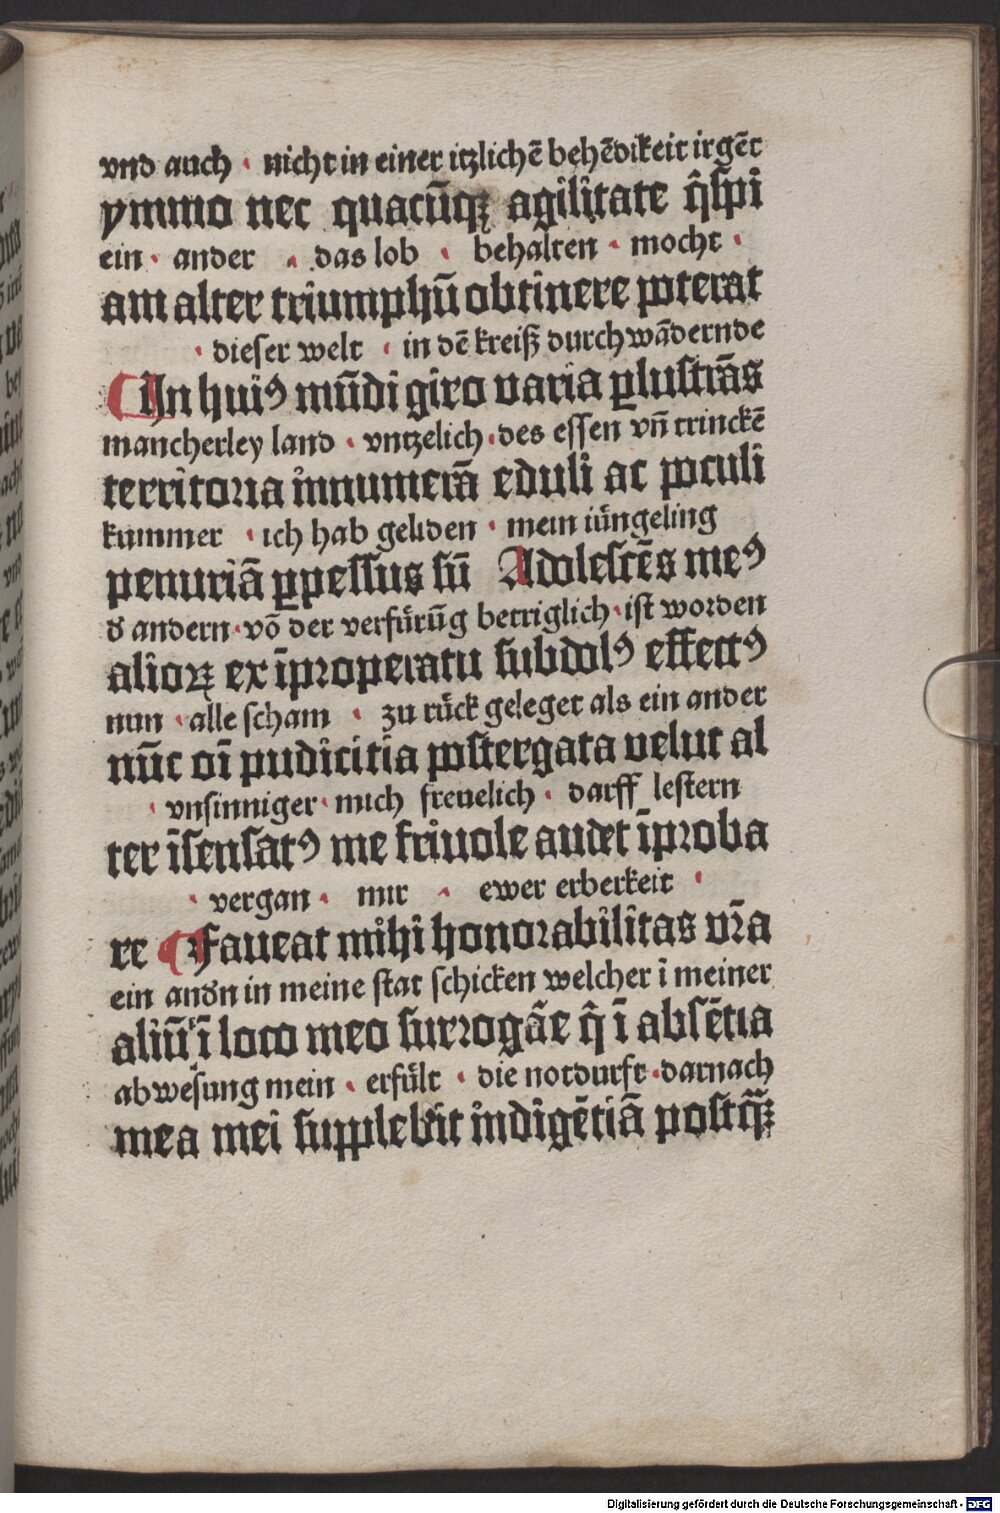 vnd auch · nicht in einer itzlichē behēdikeit irgēt
ymmo nec quacūqꝫ agilitate q̄ſpi
ein · ander · das lob · behalten · mocht ·
am alter triumphū obtinere poterat
· dieſer welt · in dē kreiß durchwādernde
In huiꝰ mūdi giro varia ꝑluſtrās
mancherley land · vntzelich · des eſſen vn̄ trinckē
territoria innumerā eduli ac poculi
kummer · ich hab geliden · mein iüngeling
penuriā ꝑpeſſus ſū Adoleſcēs meꝰ
d̛ andern · vō der verfürūg betriglich · iſt worden
alioꝝ ex īproperatu ſubdolꝰ effectꝰ
nun · alle ſcham · zu rück geleget als ein ander
nūc oī pudicitia poſtergata velut al
· vnsinniger · mich freuelich · darff leſtern
ter īſenſatꝰ me friuole audet īproba
· vergan · mir · ewer erberkeit ·
re Faueat mihi honorabilitas vr̄a
ein and̛n in meine ſtat ſchicken welcher ī meiner
aliū ī loco meo ſurrogāe q̄ ī abſētia
abweſung mein · erfült · die notdurft · darnach
mea mei ſupplebit indigētiā poſtq̄ꝫ
Digitalisierung gefördert durch die Deutsche Forschungsgemeinschaft - DFG